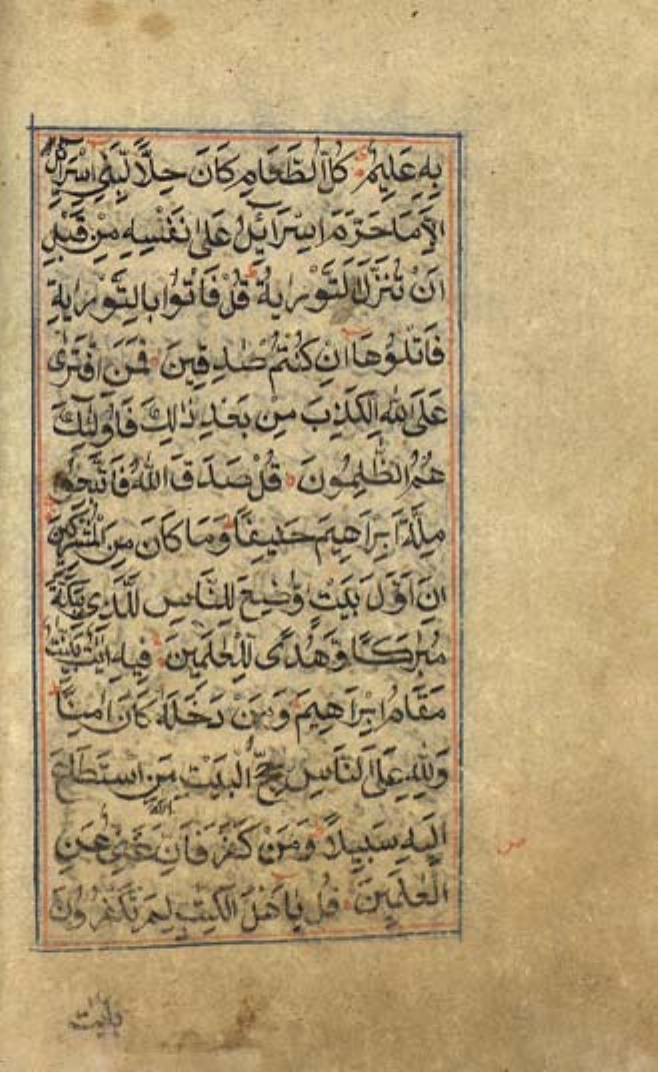 بِهِ عَلِيمٌ كُلُّ الطَّعَامِ كَانَ حِلًّا لِّبَنِي اِسْرَائِيلَ
اِلَّا مَا حَرَّمَ اِسْرَائِيلُ عَلٰى نَفْسِهِ مِنْ قَبْلِ
اَنْ تُنَزَّلَ التَّوْرٰيةُ قُلْ فَاْتُوا بِالتَّوْرٰيةِ
فَاتْلُوْهَا اِنْ كُنْتُمْ صٰدِقِينَ فَمَنِ افْتَرٰى
عَلَى اللهِ الْكَذِبَ مِنْ بَعْدِ ذٰلِكَ فَاُولٰئِكَ
هُمُ الظّٰلِمُونَ قُلْ صَدَقَ اللهُ فَاتَّبِعُوا
مِلَّةَ اِبْرَاهِيمَ حَنِيفًا وَمَا كَانَ مِنَ الْمُشْرِكِينَ
اِنَّ اَوَّلَ بَيْتٍ وُّضِعَ لِلنَّاسِ لَلَّذِي بِبَكَّةَ
مُبٰرَكًا وَّهُدًى لِّلْعٰلَمِينَ فِيهِ اٰيٰتٌ بَيِّنٰتٌ
مَقَامُ اِبْرَاهِيمَ وَمَنْ دَخَلَهُ كَانَ اٰمِنًا
وَلِلّٰهِ عَلَى النَّاسِ حِجُّ الْبَيْتِ مَنِ اسْتَطَاعَ
اِلَيْهِ سَبِيلًا وَمَنْ كَفَرَ فَاِنَّ الله غَنِيٌّ عَنِ
الْعٰلَمِينَ قُلْ يٰاَهْلَ الْكِتٰبِ لِمَ تَكْفُرُونَ
ص
بِاٰيٰت